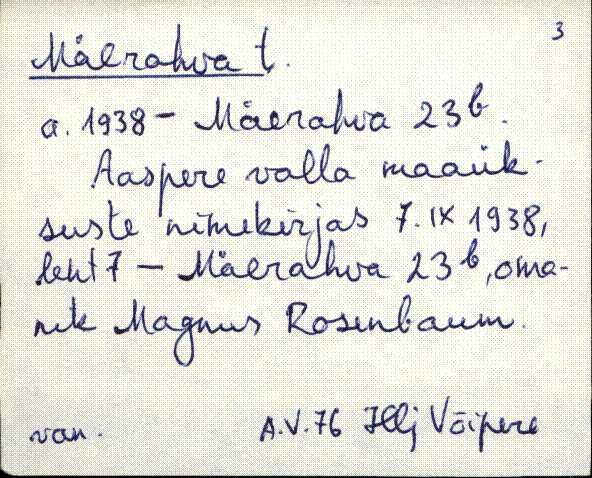 3
Mäerahva t.
a. 1938 - Mäerahva 23b.
Aaspere valla maaük-
suste nimekirjas 7. IX 1938,
leht 7 - Mäerahva 23b, oma-
nik Magnus Rosenbaum.
van. A.V. 76 Hlj Võipere